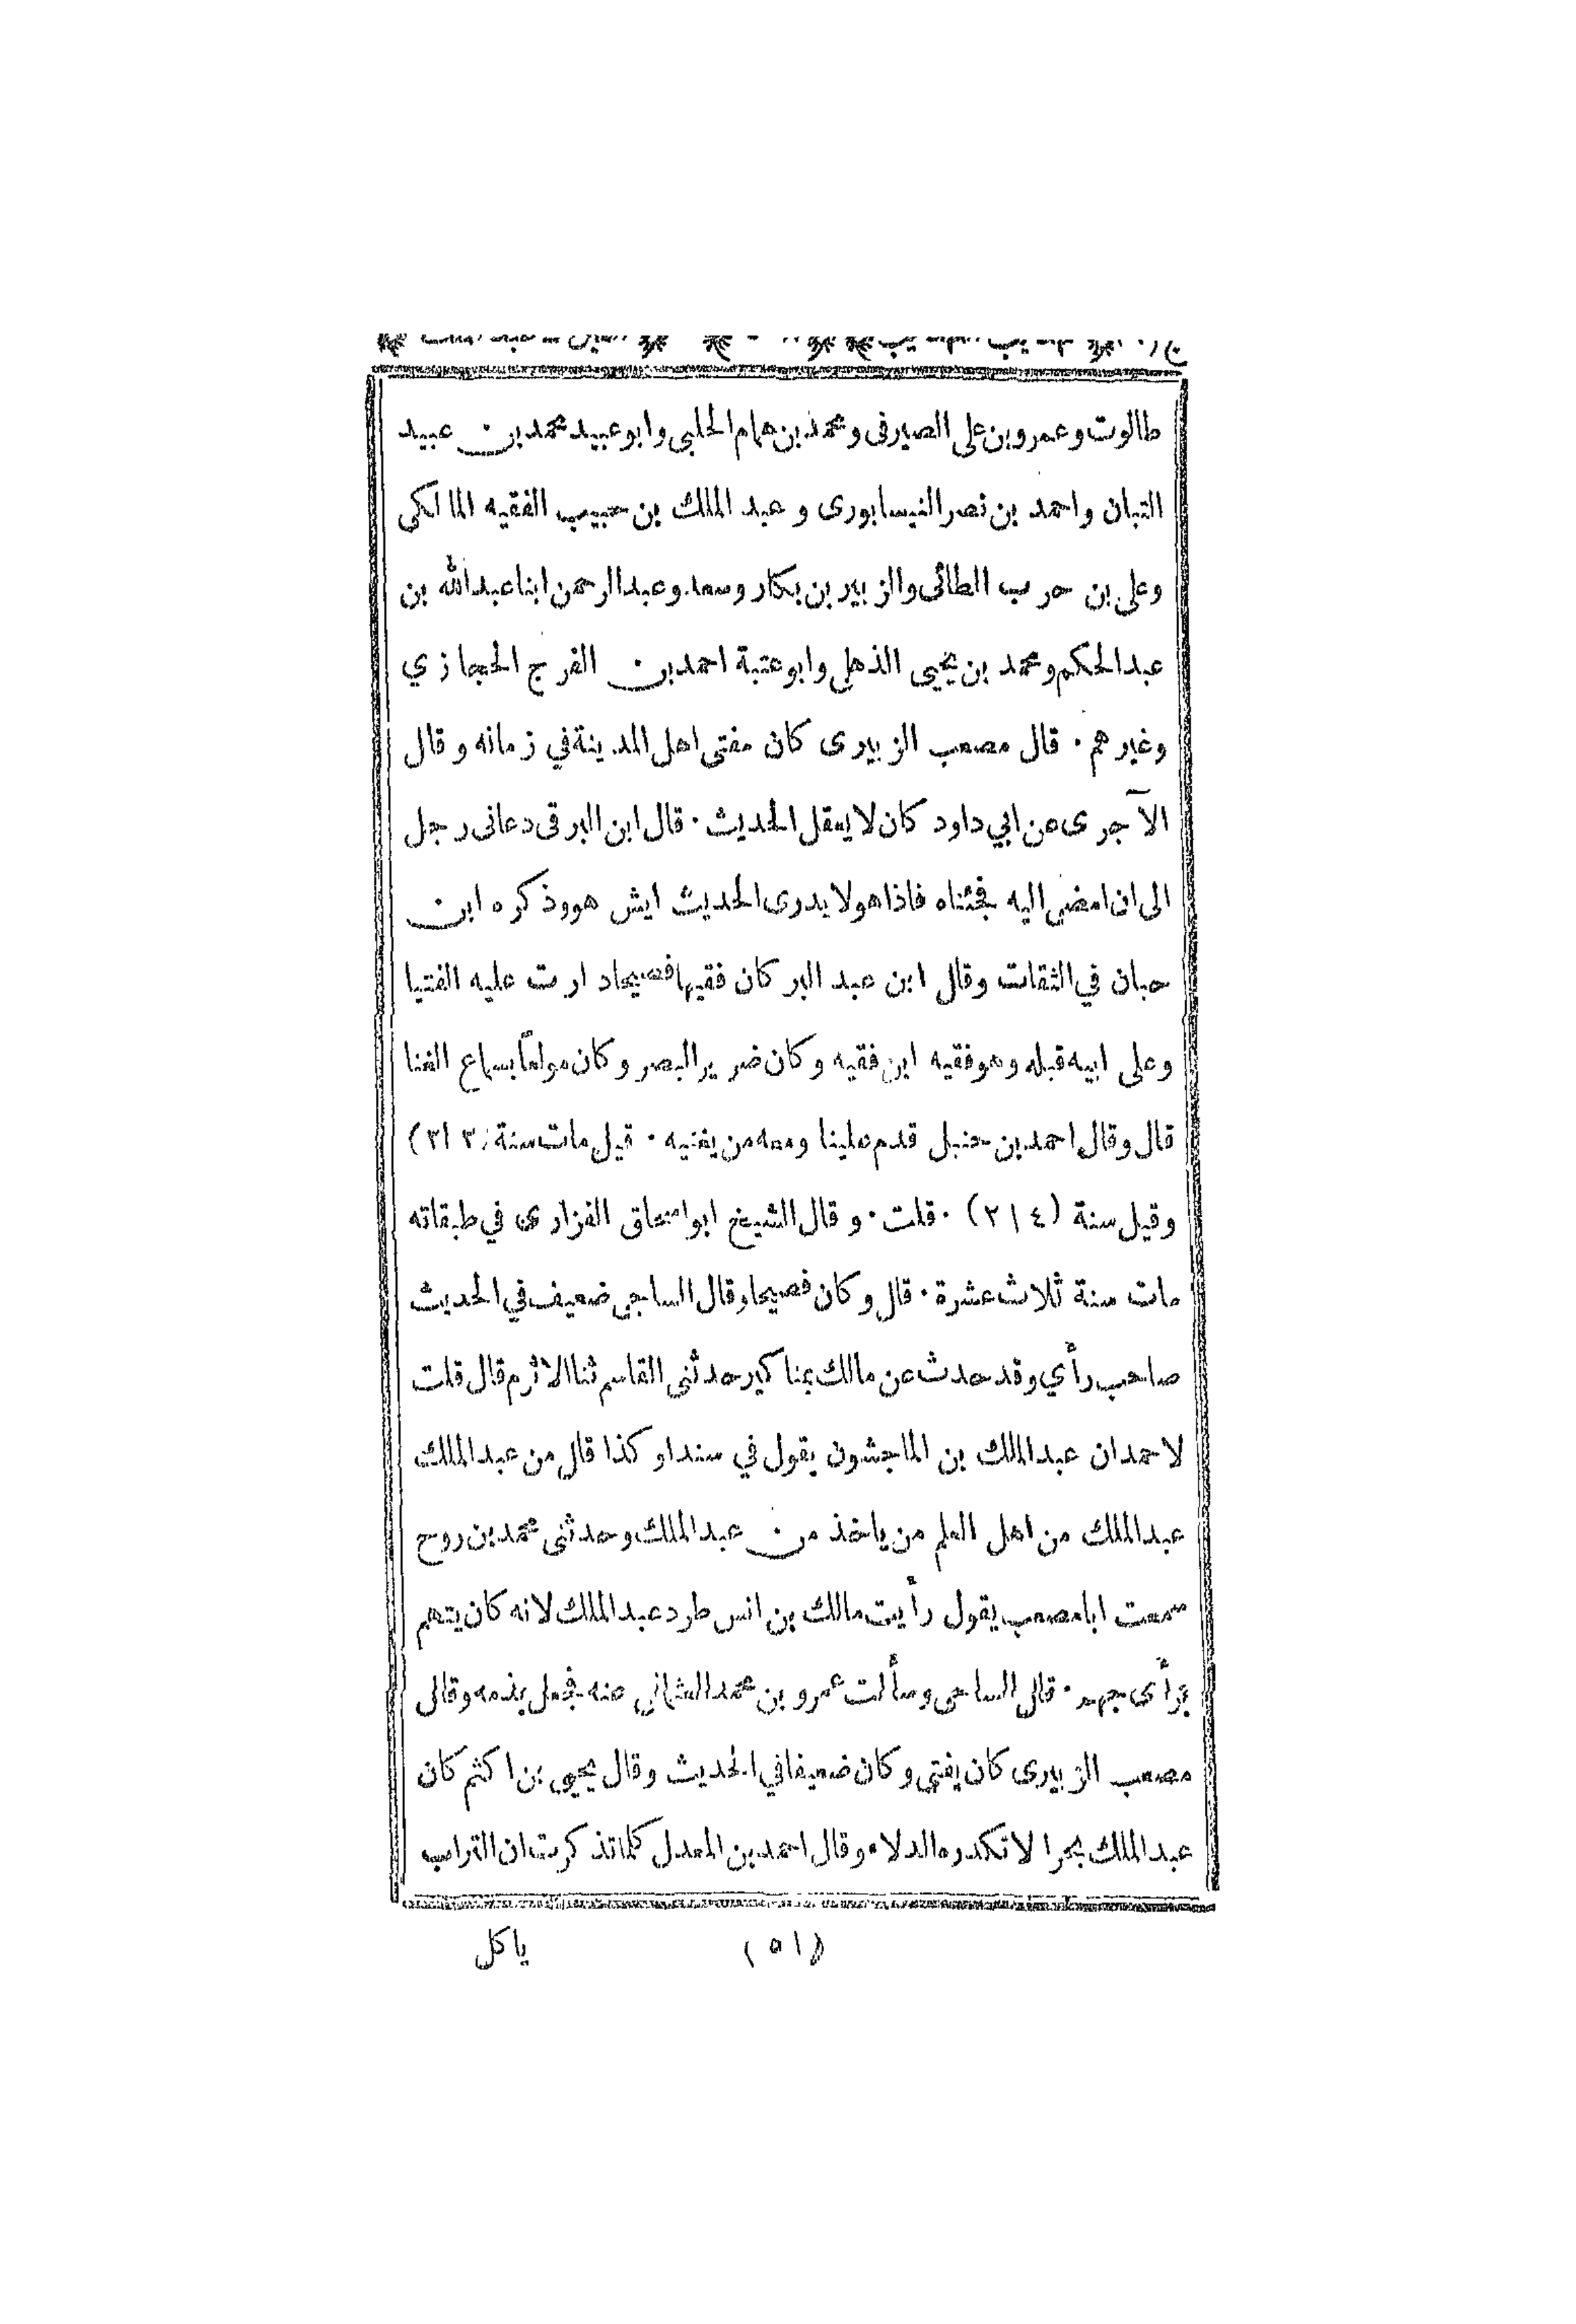 طالوت وعمرو بن على الصيرفى ومحمد بن همام الحلبي وابو عبيد محمد بن عبيد
التبان واحمد بن نصر النيسابورى و عبد الملك بن حبيب الفقيه المالكى
وعلى بن حرب الطائى والزبير بن بكار وسعد وعبد الرحمن ابنا عبد الله بن
عبد الحكم ومحمد بن يحيى الذهلى وابو عتبة احمد بن الفرج الحجازي
وغيرهم ٠ قال مصعب الزبيرى كان مفتى اهل المدينة في زمانه وقال
الآجرى عن ابي داود كان لا يعقل الحديث ٠ قال ابن البرقى دعانى رجل
الى ان امضى اليه فجئناه فاذا هو لا يدرى الحديث ايش هو وذكره ابن
حبان في الثقات وقال ابن عبد البر كان فقيها فصيحا دارت عليه الفتيا
وعلى ابيه قبله وهو فقيه ابن فقيه وكان ضرير البصر وكان مولعاً بسماع الغنا
قال وقال احمد بن حنبل قدم علينا ومعه من يغنيه ٠ قيل مات سنة (٢١٣)
وقيل سنة (٢١٤) ٠ قلت ٠ وقال الشيخ ابو اسحاق الفزارى في طبقاته
مات سنة ثلاث عشرة ٠ قال وكان فصيحا وقال الساجى ضعيف في الحديث
صاحب رأي وقد حدث عن مالك بمناكير حدثنى القاسم ثنا الاثرم قال قلت
لاحمد ان عبد الملك بن الماجشون يقول في سند او كذا قال من عبد الملك
عبد الملك من اهل العلم من ياخذ من عبد الملك وحدثنى محمد بن روح
سمعت ابا مصعب يقول رأيت مالك بن انس طرد عبد الملك لانه كان يتهم
برأى جهم ٠ قال الساجى وسألت عمرو بن محمد العثمانى عنه فجعل يذمه وقال
مصعب الزبيرى كان يفتى وكان ضعيفا في الحديث وقال يحيى بن اكثم كان
عبد الملك بحرا لا تكدره الدلاء وقال احمد بن المعدل كلما تذكرت ان التراب
(٥١) ياكل